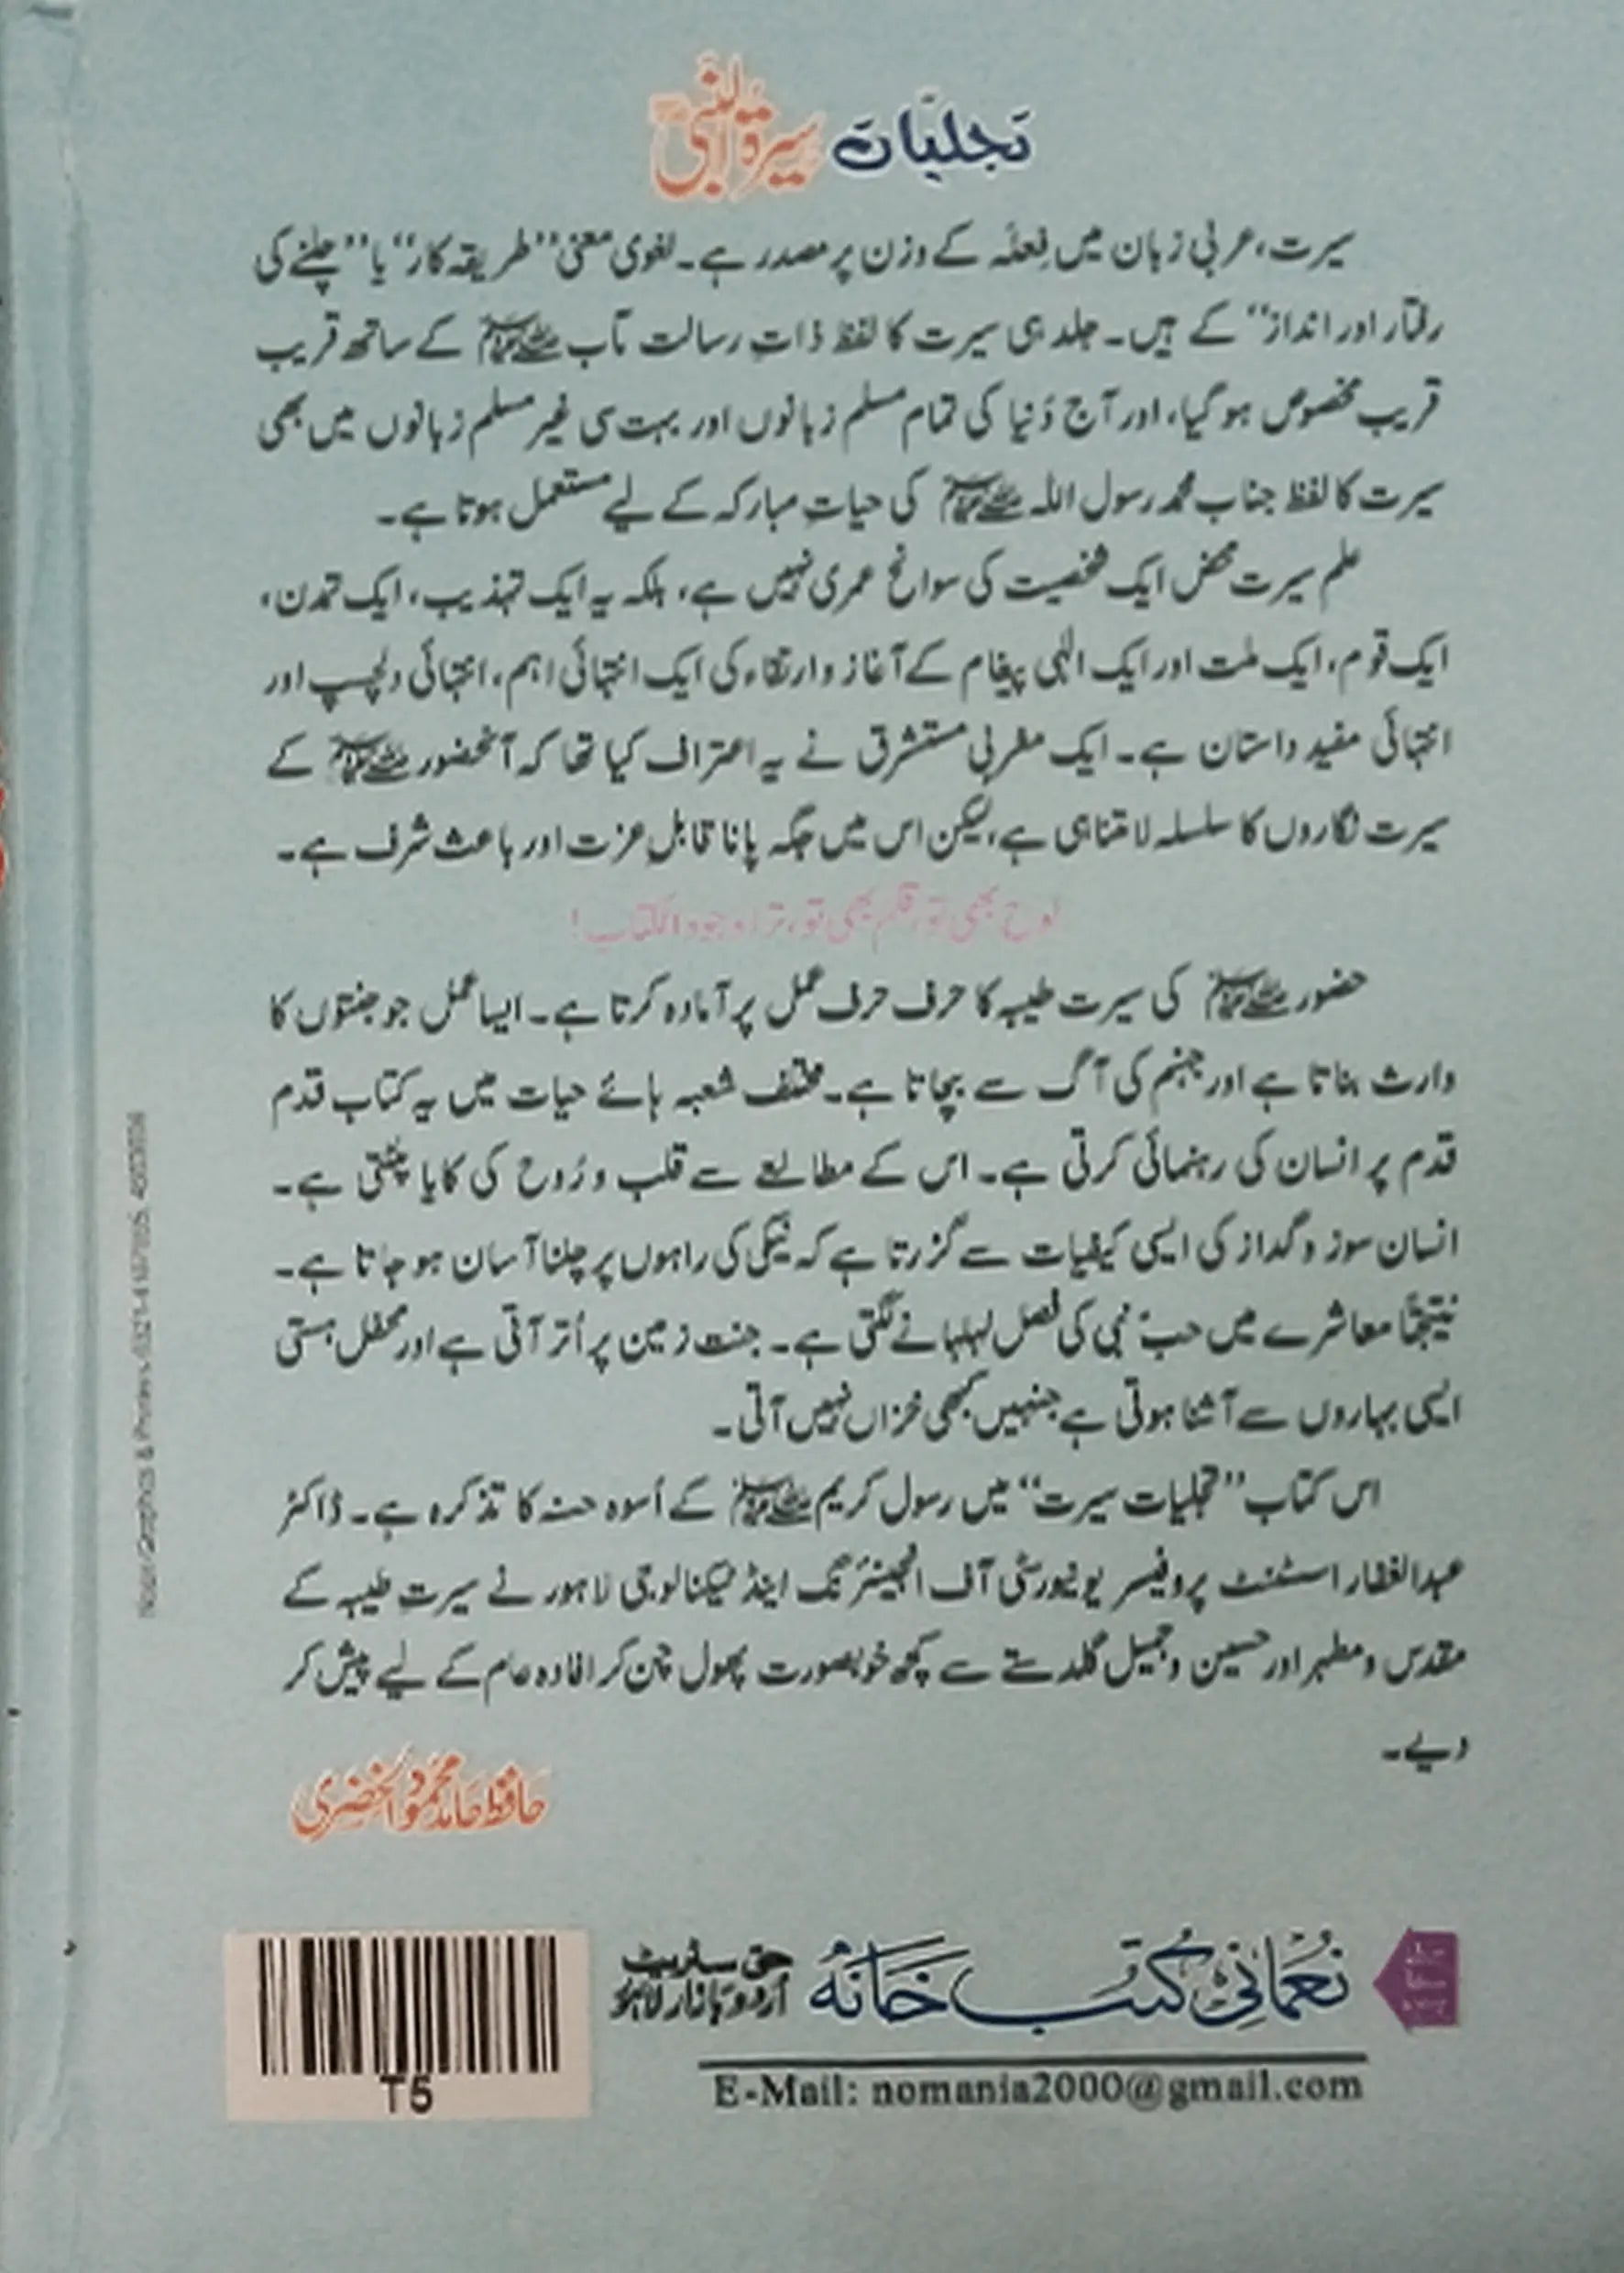 تجلیات سیرۃ النبی ﷺ
سیرت، عربی زبان میں فِعلَہ کے وزن پر مصدر ہے۔ لغوی معنی ”طریقہ کار“ یا ”چلنے کی
رفتار اور انداز“ کے ہیں۔ جلد ہی سیرت کا لفظ ذاتِ رسالت مآب ﷺ کے ساتھ قریب
قریب مخصوص ہو گیا، اور آج دُنیا کی تمام مسلم زبانوں اور بہت سی غیر مسلم زبانوں میں بھی
سیرت کا لفظ جناب محمد رسول اللہ ﷺ کی حیاتِ مبارکہ کے لیے مستعمل ہوتا ہے۔
علم سیرت محض ایک شخصیت کی سوانح عمری نہیں ہے، بلکہ یہ ایک تہذیب، ایک تمدن،
ایک قوم، ایک ملت اور ایک الٰہی پیغام کے آغاز و ارتقاء کی ایک انتہائی اہم، انتہائی دلچسپ اور
انتہائی مفید داستان ہے۔ ایک مغربی مستشرق نے یہ اعتراف کیا تھا کہ آنحضور ﷺ کے
سیرت نگاروں کا سلسلہ لامتناہی ہے، لیکن اس میں جگہ پانا قابلِ عزت اور باعث شرف ہے۔
لوح بھی تو، قلم بھی تو، ترا وجود الکتاب!
حضور ﷺ کی سیرت طیبہ کا حرف حرف عمل پر آمادہ کرتا ہے۔ ایسا عمل جو جنتوں کا
وارث بناتا ہے اور جہنم کی آگ سے بچاتا ہے۔ مختلف شعبہ ہائے حیات میں یہ کتاب قدم
قدم پر انسان کی رہنمائی کرتی ہے۔ اس کے مطالعے سے قلب و رُوح کی کایا پلٹتی ہے۔
انسان سوز و گداز کی ایسی کیفیات سے گزرتا ہے کہ نیکی کی راہوں پر چلنا آسان ہو جاتا ہے۔
نتیجتًا معاشرے میں حبّ نبی کی فصل لہلہانے لگتی ہے۔ جنت زمین پر اُتر آتی ہے اور محفل ہستی
ایسی بہاروں سے آشنا ہوتی ہے جنہیں کبھی خزاں نہیں آتی۔
اس کتاب ”تجلیات سیرت“ میں رسول کریم ﷺ کے اُسوہ حسنہ کا تذکرہ ہے۔ ڈاکٹر
عبدالغفار اسسٹنٹ پروفیسر یونیورسٹی آف انجینئرنگ اینڈ ٹیکنالوجی لاہور نے سیرتِ طیبہ کے
مقدس و مطہر اور حسین و جمیل گلدستے سے کچھ خوبصورت پھول چن کر افادہ عام کے لیے پیش کر
دیے۔
حافظ حامد محمود الخضری
نعمانی کتب خانہ
حق سٹریٹ
اُردو بازار لاہور
E-Mail: nomania2000@gmail.com
T5
Graphics & Phones